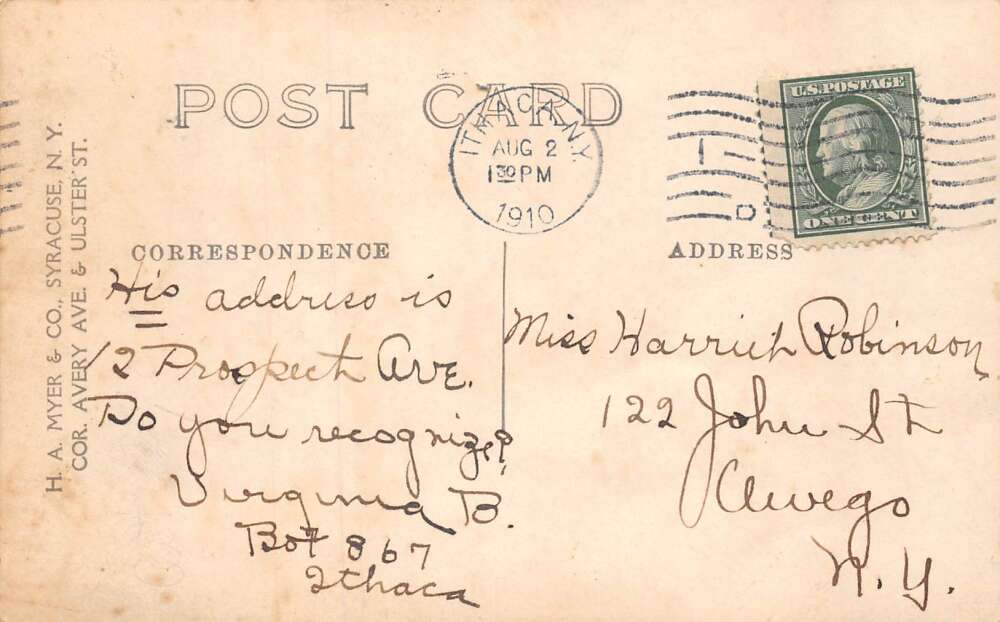 POST CARD
ITHACA, N.Y.
AUG 2
1 30 PM
1910
U.S. POSTAGE
ONE CENT
H. A. MYER & CO., SYRACUSE, N. Y.
COR. AVERY AVE. & ULSTER ST.
CORRESPONDENCE
His address is
12 Prospect Ave.
Do you recognize?
Virginia B.
Box 867
Ithaca
ADDRESS
Miss Harriet Robinson
122 John St
Owego
N. Y.